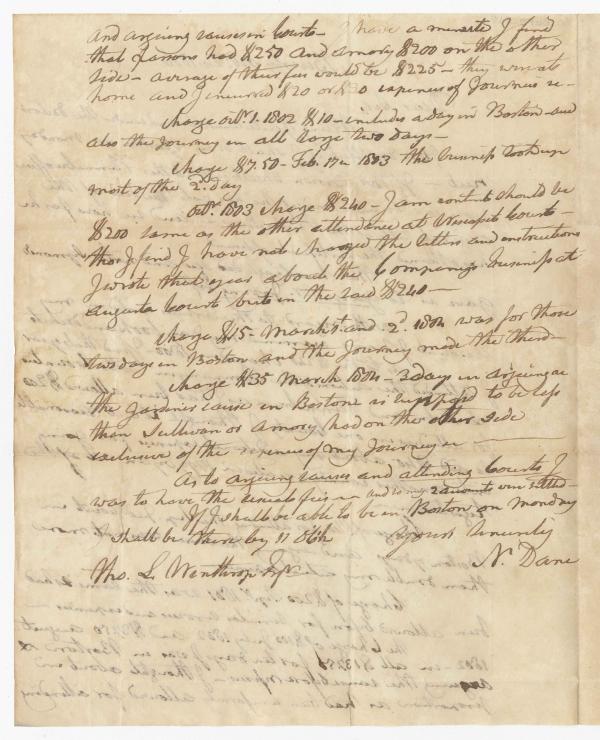 and argueing causes in Courts — I have a minute I find
that Parsons had $250 and Amory $200 on the other
side — average of their fees would be $225 — they were at
home and I incurred $20 or $30 expences of Journeies —
Charge Octr. 1. 1802 $10 — includes a day in Boston — and
also the Journey in all large two days —
Charge $7.50 — Feb. 17 1803 the business took up
most of the 2d. day
Octr. 1803 charge $240 — I am content should be
$200 same as the other attendance at Wiscasset Courts —
tho I find I have not charged the letters and instructions
I wrote that year about the Companys business at
Augusta Courts but in the said $240 —
Charge $15 — March 1st. and 2d. 1804 was for those
two days in Boston and the Journey made the third —
Charge $35 March 1804 — 3 days in argueing
the Gardiner cause in Boston is supposed to be less
than Sullivan or Amory had on the other side
exclusive of the expences of my Journey —
As to argueing causes and attending Courts I
was to have the usual fees — and so my 2 accounts were settled —
If I shall be able to be in Boston on Monday
I shall be there by 11 oclk
Yours Sincerely
N. Dane
Tho. L. Winthrop Esqr